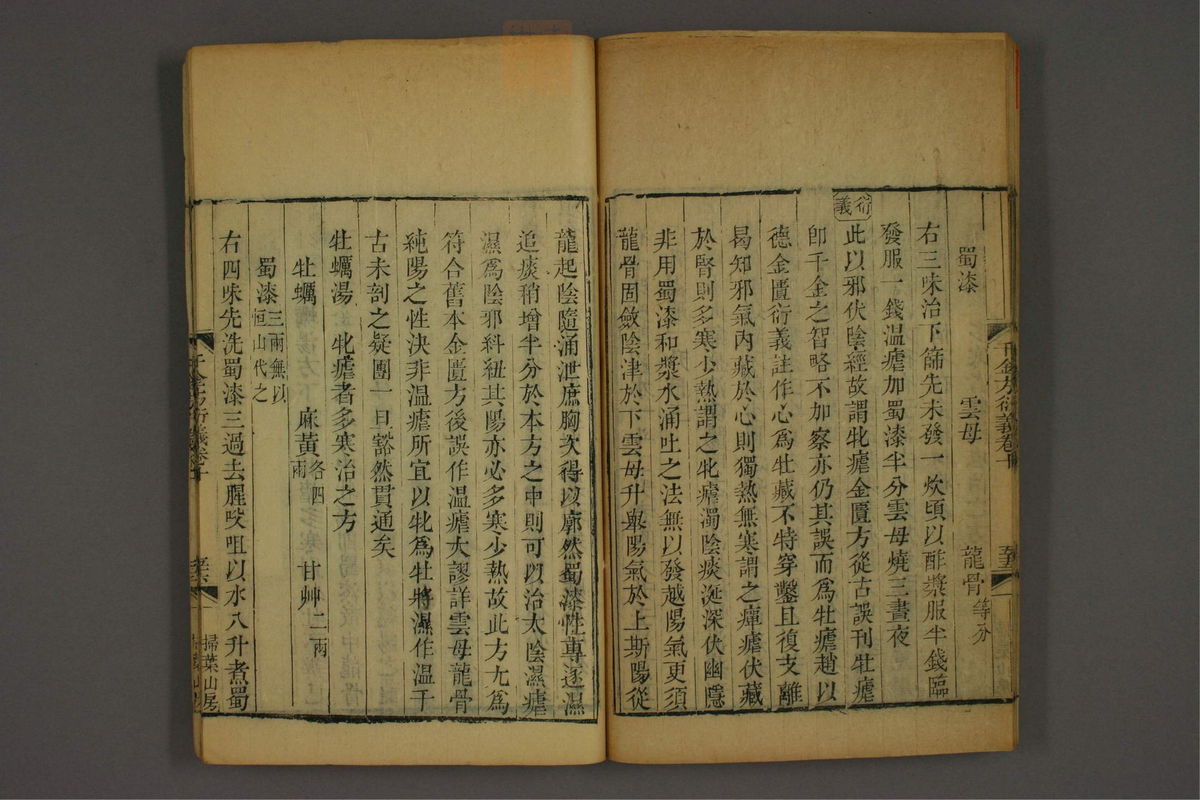 蜀漆 雲母 龍骨等分
右三味治下篩先未發一炊頃以酢漿服半錢臨
發服一錢溫瘧加蜀漆半分雲母燒三晝夜
衍義
此以邪伏陰經故謂牝瘧金匱方從古誤刊牡瘧
卽千金之智略不加察亦仍其誤而爲牡瘧趙以
德金匱衍義註作心爲牡藏不特穿鑿且復支離
曷知邪氣內藏於心則獨熱無寒謂之癉瘧伏藏
於腎則多寒少熱謂之牝瘧濁陰痰涎深伏幽隱
非用蜀漆和漿水涌吐之法無以發越陽氣更須
龍骨固斂陰津於下雲母升舉陽氣於上斯陽從
千金方衍義卷十
龍起陰隨涌泄庶胸次得以廓然蜀漆性專逐濕
追痰稍增半分於本方之中則可以治太陰濕瘧
濕爲陰邪糾紐其陽亦必多寒少熱故此方尤爲
符合舊本金匱方後誤作溫瘧大謬詳雲母龍骨
純陽之性決非溫瘧所宜以牝爲牡將濕作溫千
古未剖之疑團一旦豁然貫通矣
牡蠣湯 牝瘧者多寒治之方
牡蠣 麻黃各四兩 甘艸二兩
蜀漆三兩無以恒山代之
右四味先洗蜀漆三過去腥㕮咀以水八升煮蜀
掃葉山房